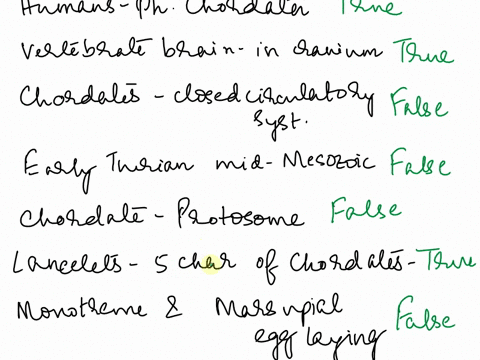 Humans - Ph. Chordata True
Vertebrate brain - in cranium True
Chordates - closed circulatory False
syst.
Early Turian mid-Mesozoic False
Chordate - Protosome False
Lancelets - 5 char of Chordates - True
Monotreme & Marsupial False
egg laying